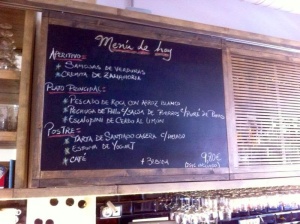 Menú de hoy
APERITIVO:
* SAMOSAS DE VERDURAS
* CREMITA DE ZANAHORIA
PLATO PRINCIPAL:
* PESCADO DE ROCA CON ARROZ BLANCO
* PECHUGA DE POLLO c/SALSA DE PUERROS Y PURÉ DE PATATA
* ESCALOPINES DE CERDO AL LIMÓN
POSTRE:
* TARTA DE SANTIAGO CASERA c/HELADO
* ESPUMA DE YOGURT
* CAFÉ
+ BEBIDA
9,90€